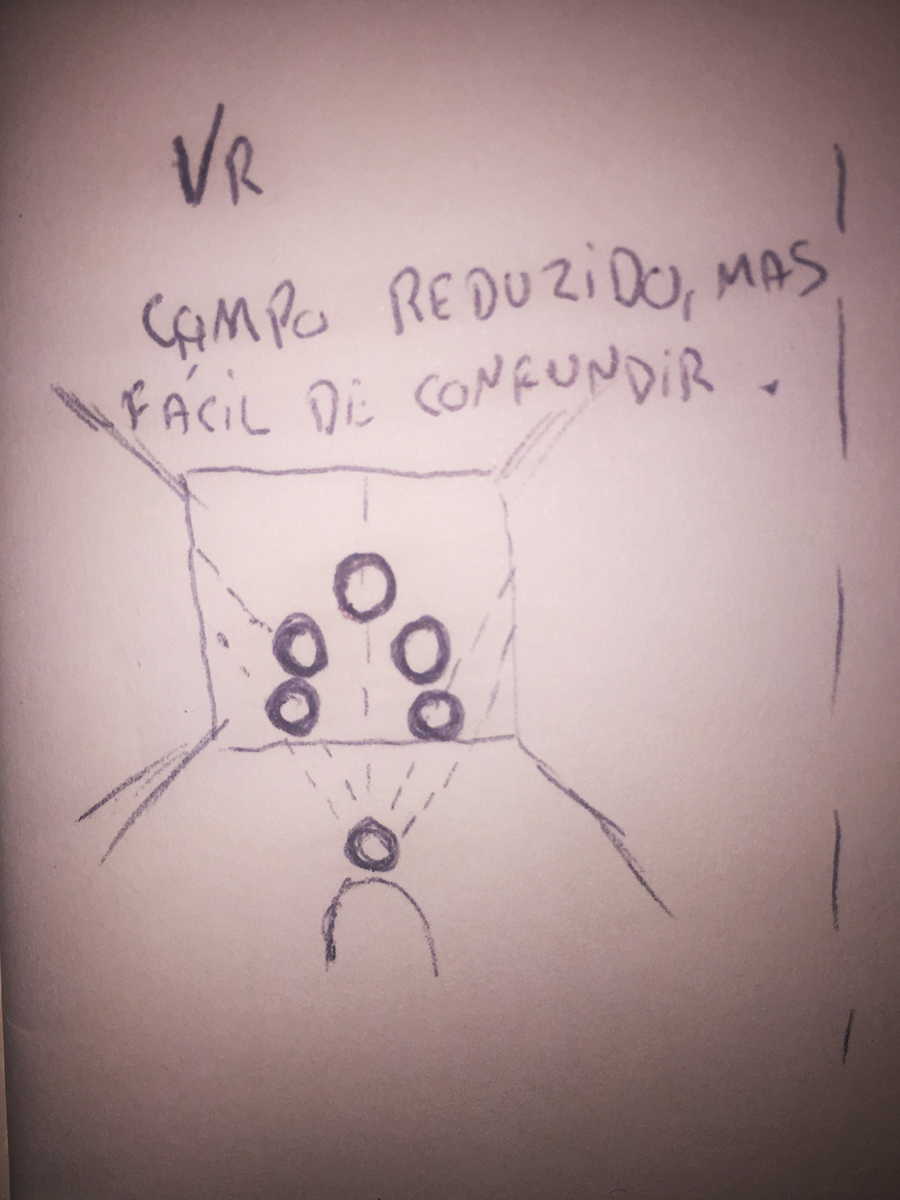 VR
CAMPO REDUZIDO, MAS
FÁCIL DE CONFUNDIR.